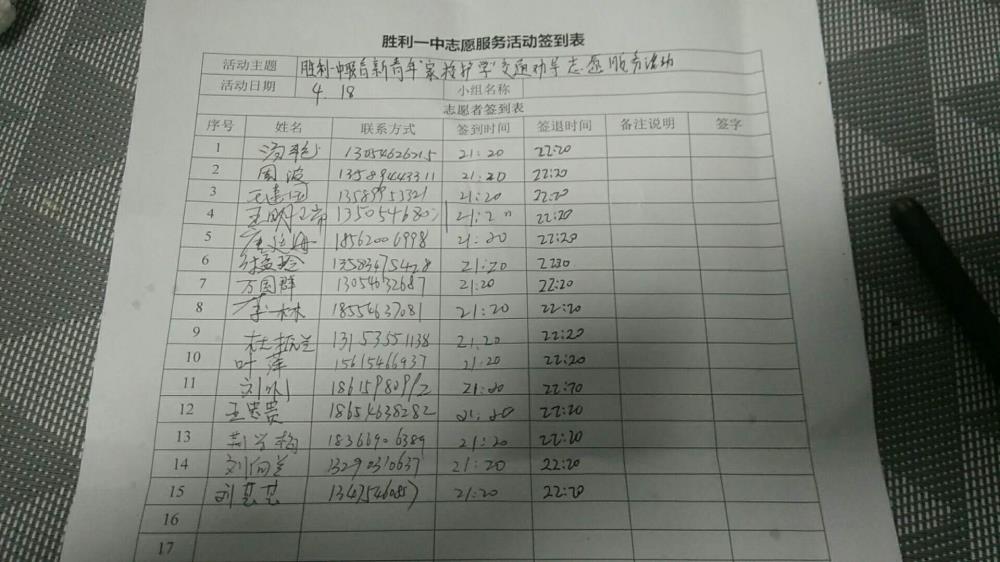 胜利一中志愿服务活动签到表
活动主题 胜利一中 新青年"家校护学"交通劝导志愿服务活动
活动日期 4.18 小组名称
志愿者签到表
序号 姓名 联系方式 签到时间 签退时间 备注说明 签字
1 13054626215 21:20 22:20
2 周波 13589444311 21:20 22:20
3 王建国 21:20 22:20
4 22:20
5 18562006998 21:20 22:20
6 13583475428 21:20 2230
7 万国群 13054632687 21:20 22:20
8 李林 18554637081 21:20 22:20
9 13153551138 21.20 22:20
10 叶萍 15615466937 21:20 22:20
11 21:20 22:20
12 王忠贵 18654638282 21:20 22:20
13 18366906389 21:20 22:20
14 刘向兰 13290310637 21:20 22:20
15 21:20 22:20
16
17